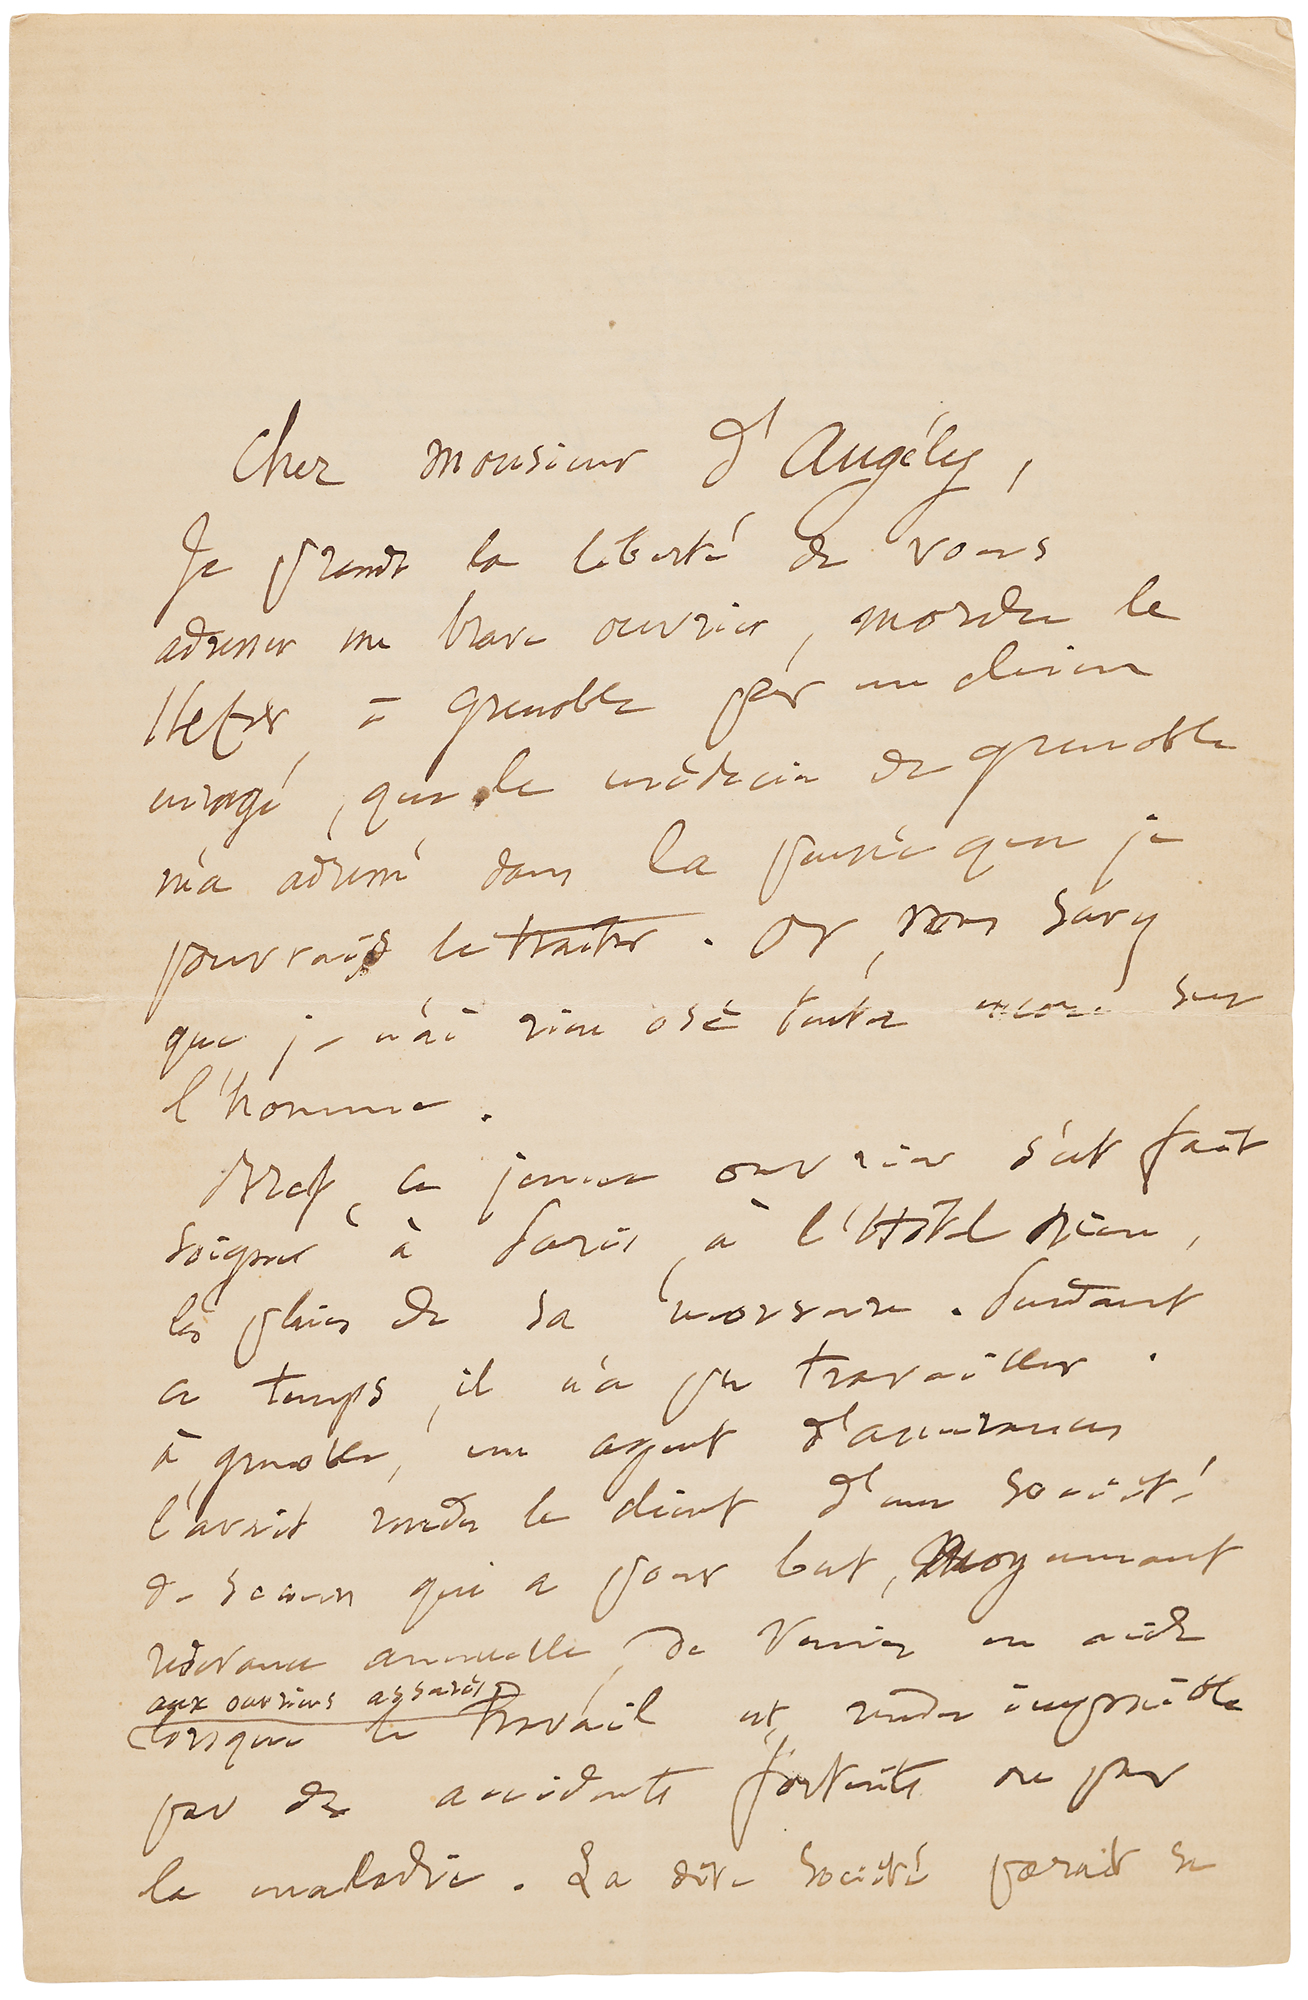 Cher monsieur d'Angély,
Je prends la liberté de vous
adresser un brave ouvrier, mordu le
11 fevr, à Grenoble par un chien
enragé, que le médecin de Grenoble
m'a adressé dans la pensée que je
pourrais le traiter. Or, vous savez
que je n'ai rien osé tenter encore sur
l'homme.
Bref, ce jeune ouvrier s'est fait
soigner à Paris, à l'Hôtel Dieu,
les plaies de sa morsure. Pendant
ce temps, il n'a pu travailler.
à Grenoble, un agent d'assurances
l'avait rendu le client d'une société
de secours qui a pour but, moyennant
redevance annuelle, de venir en aide
aux ouvriers assurés
lorsque le travail est rendu impossible
par des accidents fortuits ou par
la maladie. La dite société paraît se